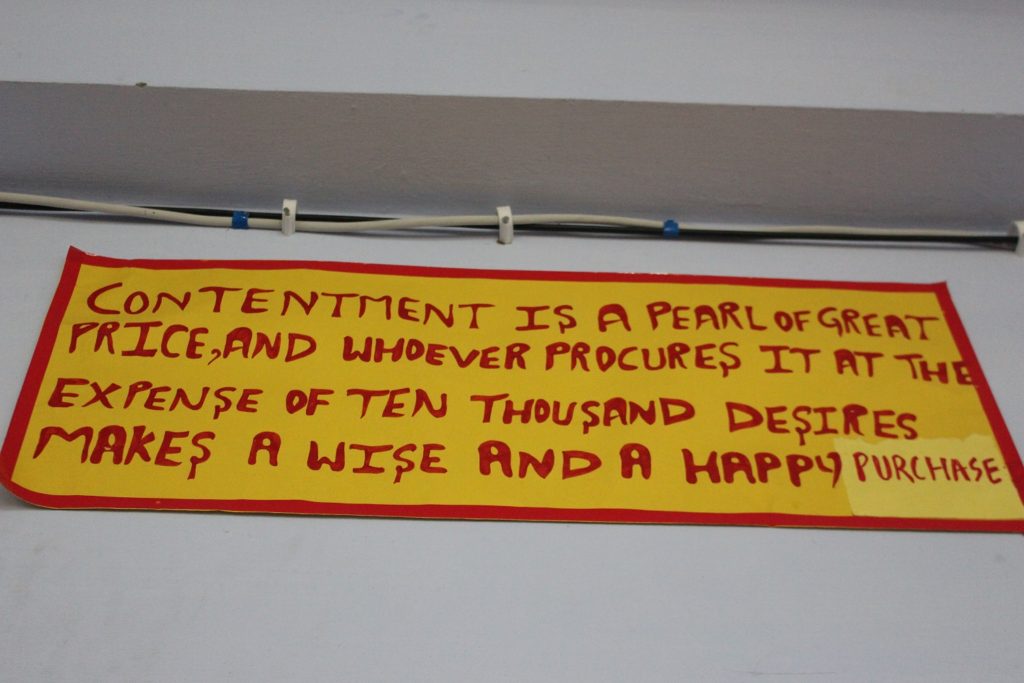 CONTENTMENT IS A PEARL OF GREAT
PRICE, AND WHOEVER PROCURES IT AT THE
EXPENSE OF TEN THOUSAND DESIRES
MAKES A WISE AND A HAPPY PURCHASE